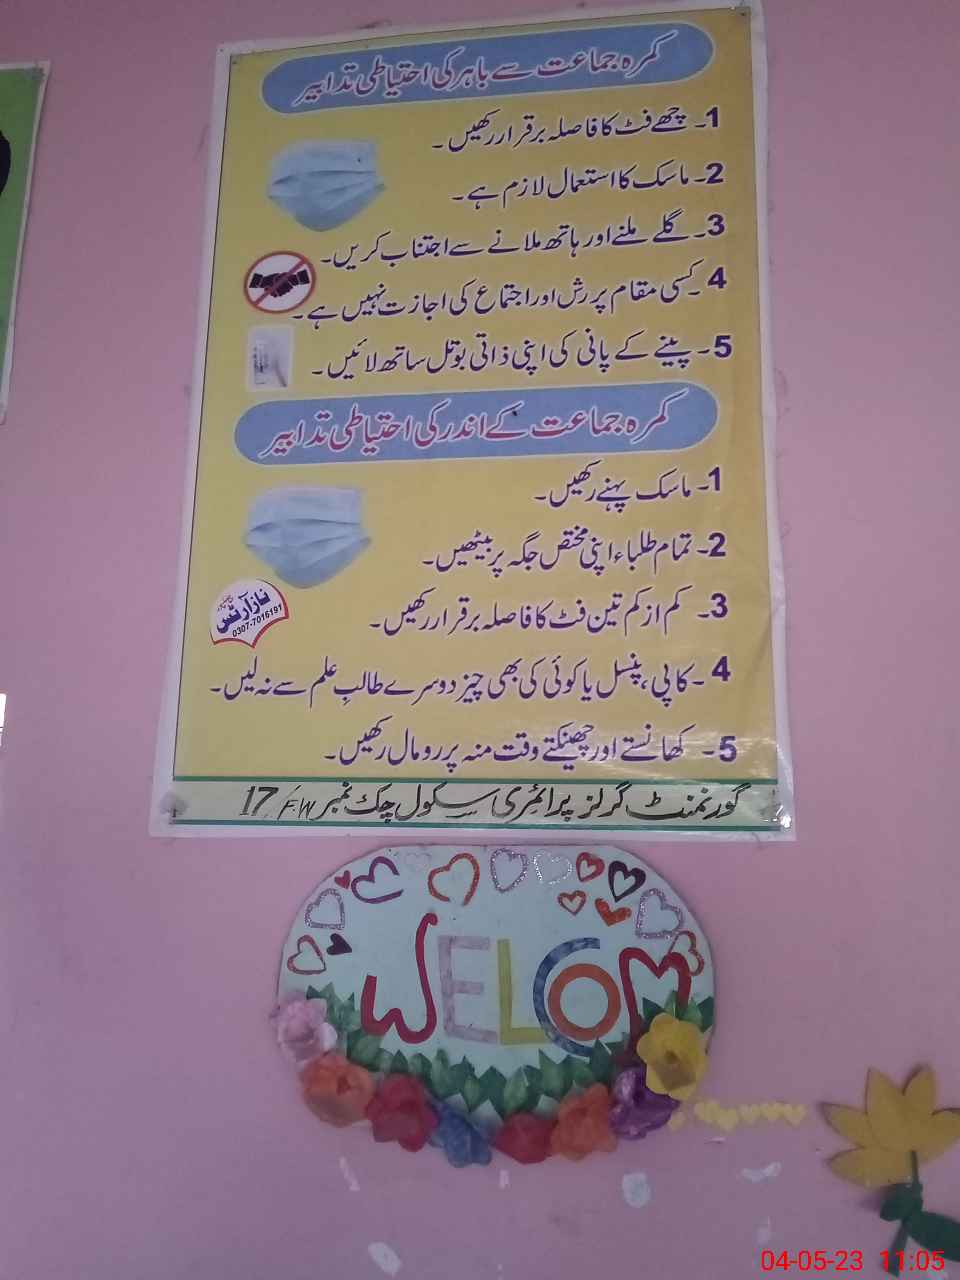 کمرہ جماعت سے باہر کی احتیاطی تدابیر
1۔ چھے فٹ کا فاصلہ برقرار رکھیں۔
2۔ ماسک کا استعمال لازم ہے۔
3۔ گلے ملنے اور ہاتھ ملانے سے اجتناب کریں۔
4۔ کسی مقام پر رش اور اجتماع کی اجازت نہیں ہے۔
5۔ پینے کے پانی کی اپنی ذاتی بوتل ساتھ لائیں۔
کمرہ جماعت کے اندر کی احتیاطی تدابیر
1۔ ماسک پہنے رکھیں۔
2۔ تمام طلباء اپنی مختص جگہ پر بیٹھیں۔
3۔ کم از کم تین فٹ کا فاصلہ برقرار رکھیں۔
4۔ کاپی، پنسل یا کوئی کی بھی چیز دوسرے طالبِ علم سے نہ لیں۔
5۔ کھانستے اور چھینکتے وقت منہ پر رومال رکھیں۔
ناز آرٹس
0307-7016191
گورنمنٹ گرلز پرائمری سکول چک نمبر 17/FW
WELCOM
04-05-23 11:05